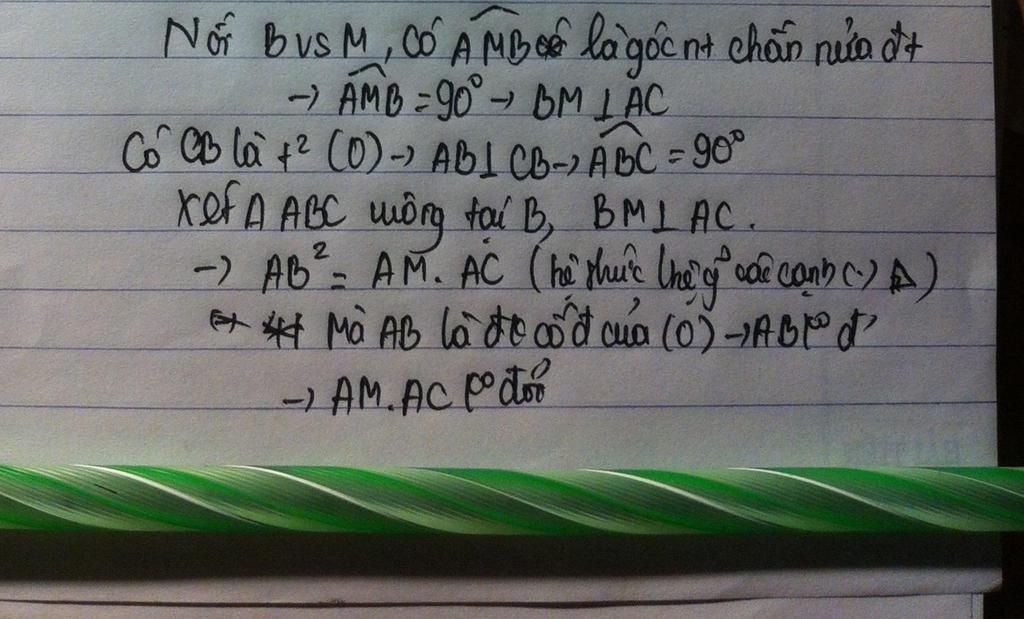 Nối B vs M, có AMB là góc nt chắn nửa đt
→ AMB = 90° → BM ⊥ AC
Có CB là t² (O) → AB ⊥ CB → ABC = 90°
Xét Δ ABC vuông tại B, BM ⊥ AC.
→ AB² = AM. AC (hệ thức lhệ g² các cạnh (.) Δ)
Mà AB là đk cố đ của (O) → AB k° đ
→ AM. AC k° đổi